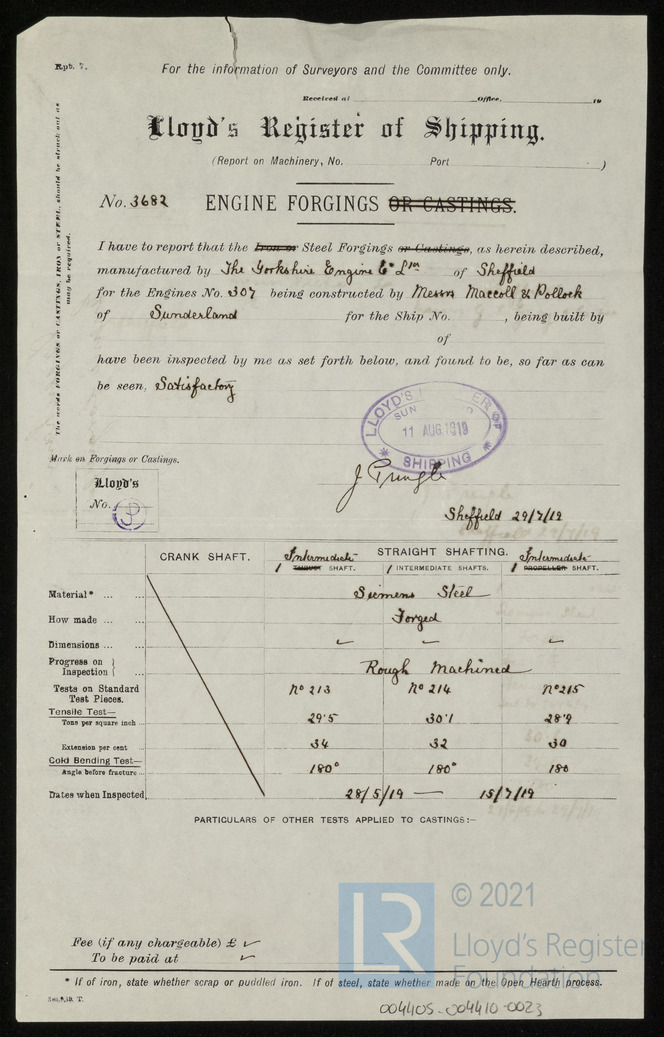 Rpt. 7.
For the information of Surveyors and the Committee only.
Received at Office, 19
Lloyd's Register of Shipping.
(Report on Machinery, No. Port )
No. 3682 ENGINE FORGINGS OR CASTINGS.
The words FORGINGS or CASTINGS, IRON or STEEL, should be struck out as may be required.
I have to report that the Iron or Steel Forgings or Castings, as herein described,
manufactured by The Yorkshire Engine Co Ltd of Sheffield
for the Engines No. 307 being constructed by Messrs Maccoll & Pollock
of Sunderland for the Ship No. , being built by
of
have been inspected by me as set forth below, and found to be, so far as can
be seen, Satisfactory
LLOYD'S REGISTER OF
11 AUG. 1919
SHIPPING
J Pringle
Mark on Forgings or Castings.
Lloyd's
No.
Sheffield 29/7/19
CRANK SHAFT. STRAIGHT SHAFTING.
1 Intermediate THRUST SHAFT. 1 INTERMEDIATE SHAFTS. 1 Intermediate PROPELLER SHAFT.
Material* ... ... Siemens Steel
How made ... ... Forged
Dimensions ... ...
Progress on Inspection ... Rough Machined
Tests on Standard Test Pieces. No 213 No 214 No 215
Tensile Test—
Tons per square inch ... 29·5 30·1 28·9
Extension per cent 34 32 30
Cold Bending Test—
Angle before fracture ... 180° 180° 180
Dates when Inspected, 28/5/19 — 15/7/19
PARTICULARS OF OTHER TESTS APPLIED TO CASTINGS:—
Fee (if any chargeable) £
To be paid at
LR
© 2021
Lloyd's Register
Foundation
* If of iron, state whether scrap or puddled iron. If of steel, state whether made on the Open Hearth process.
004405-004410-0023